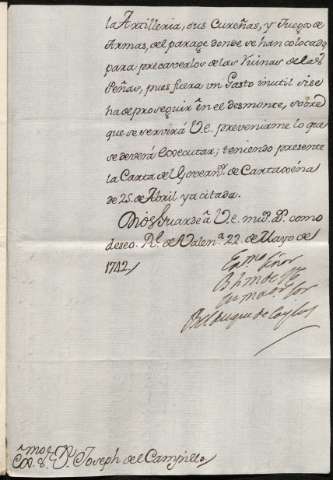 la Artilleria, sus Cureñas, y Juego de
Armas, del parage donde se han colocado,
para precaverlos de las Ruinas de las
Peñas, pues fuera un Gasto inutil si se
ha de proseguir en el desmonte, sobre
que se servirá V.E. prevenirme lo que
se deverá Executar; teniendo presente
la Carta del Governr. de Cartagena
de 25. de Abril ya citada.
Dios Guarde a V.E. ms. as. como
deseo. Rl. de Valena. 22. de Mayo de
1742.
Exmo. Señor
B l m de V E
su maor. sor
El Duque de Caylus
Exmo. Sr. Dn. Joseph del Campillo